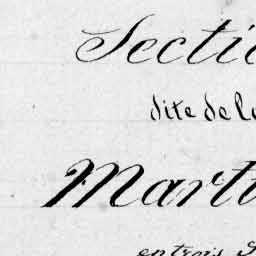 Secti
dite de la
Marti
en trois S